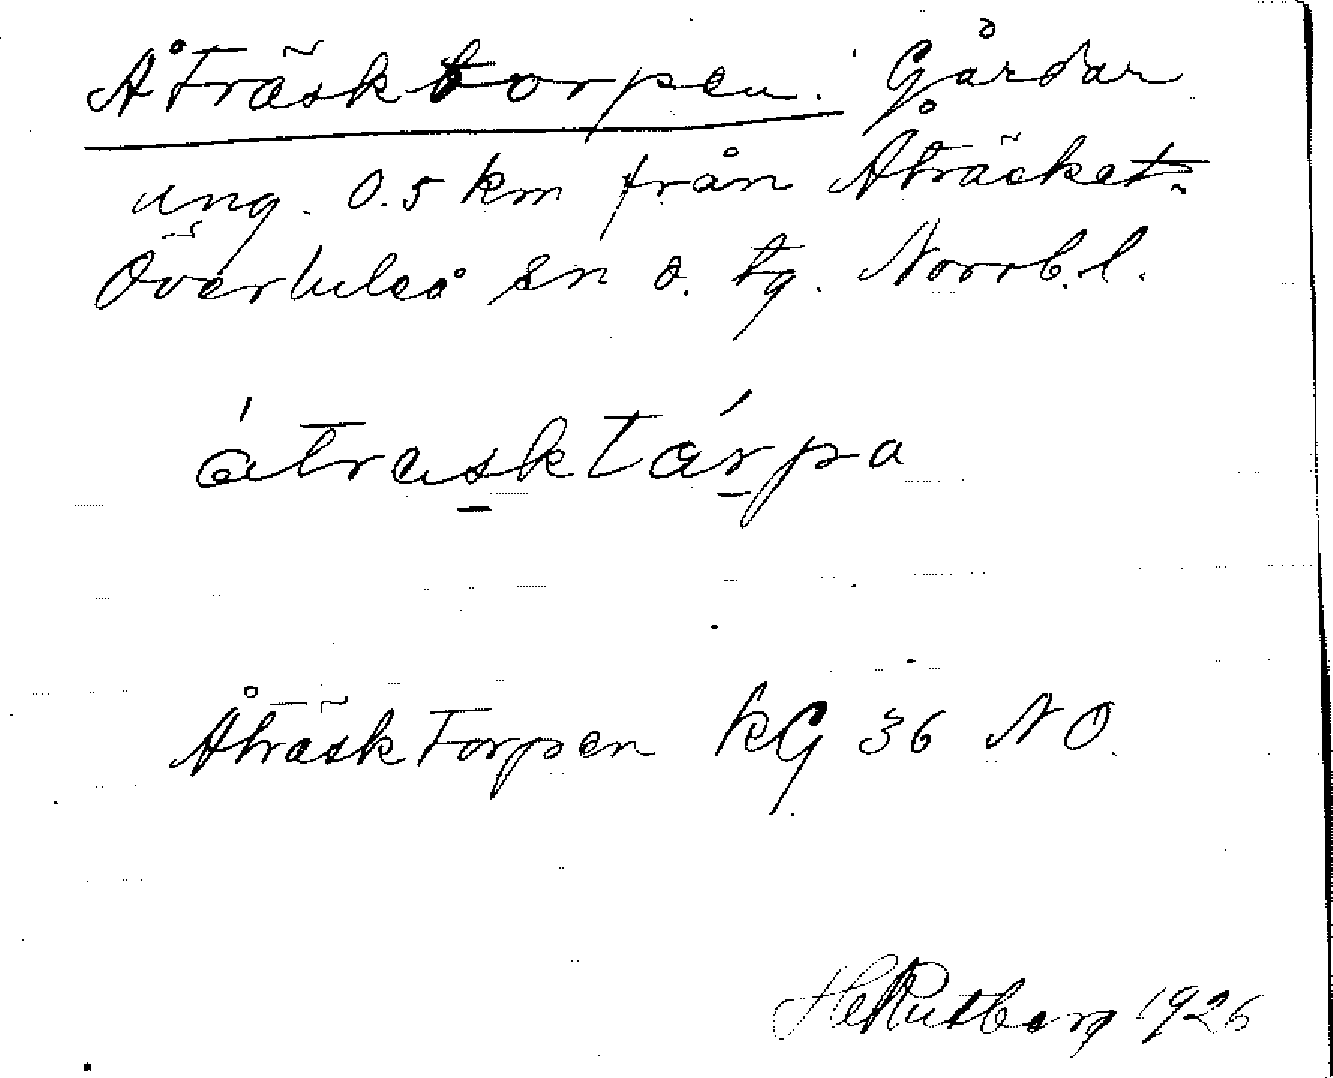 Åträsktorpen. Gårdar
ung. 0.5 km från Åträsket.
Överluleå sn o. tg. Norrb.l.
åtrasktårpa
Åträsktorpen kG 36 NO.
HeRutberg 1926